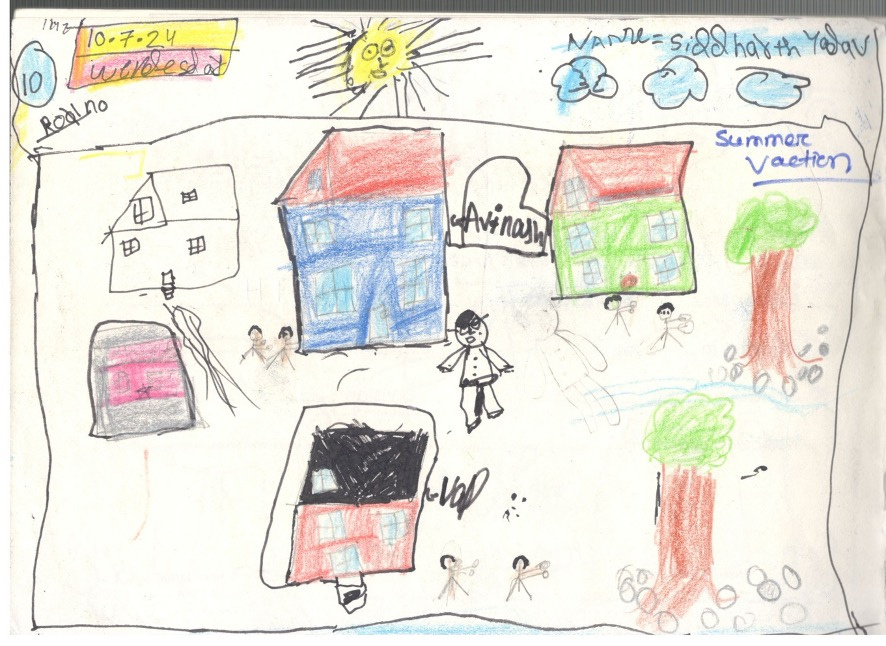 10.7.24
werdesdat
10
Rod no
Name = Siddharth Yadav
Summer
Vaction
Avinash